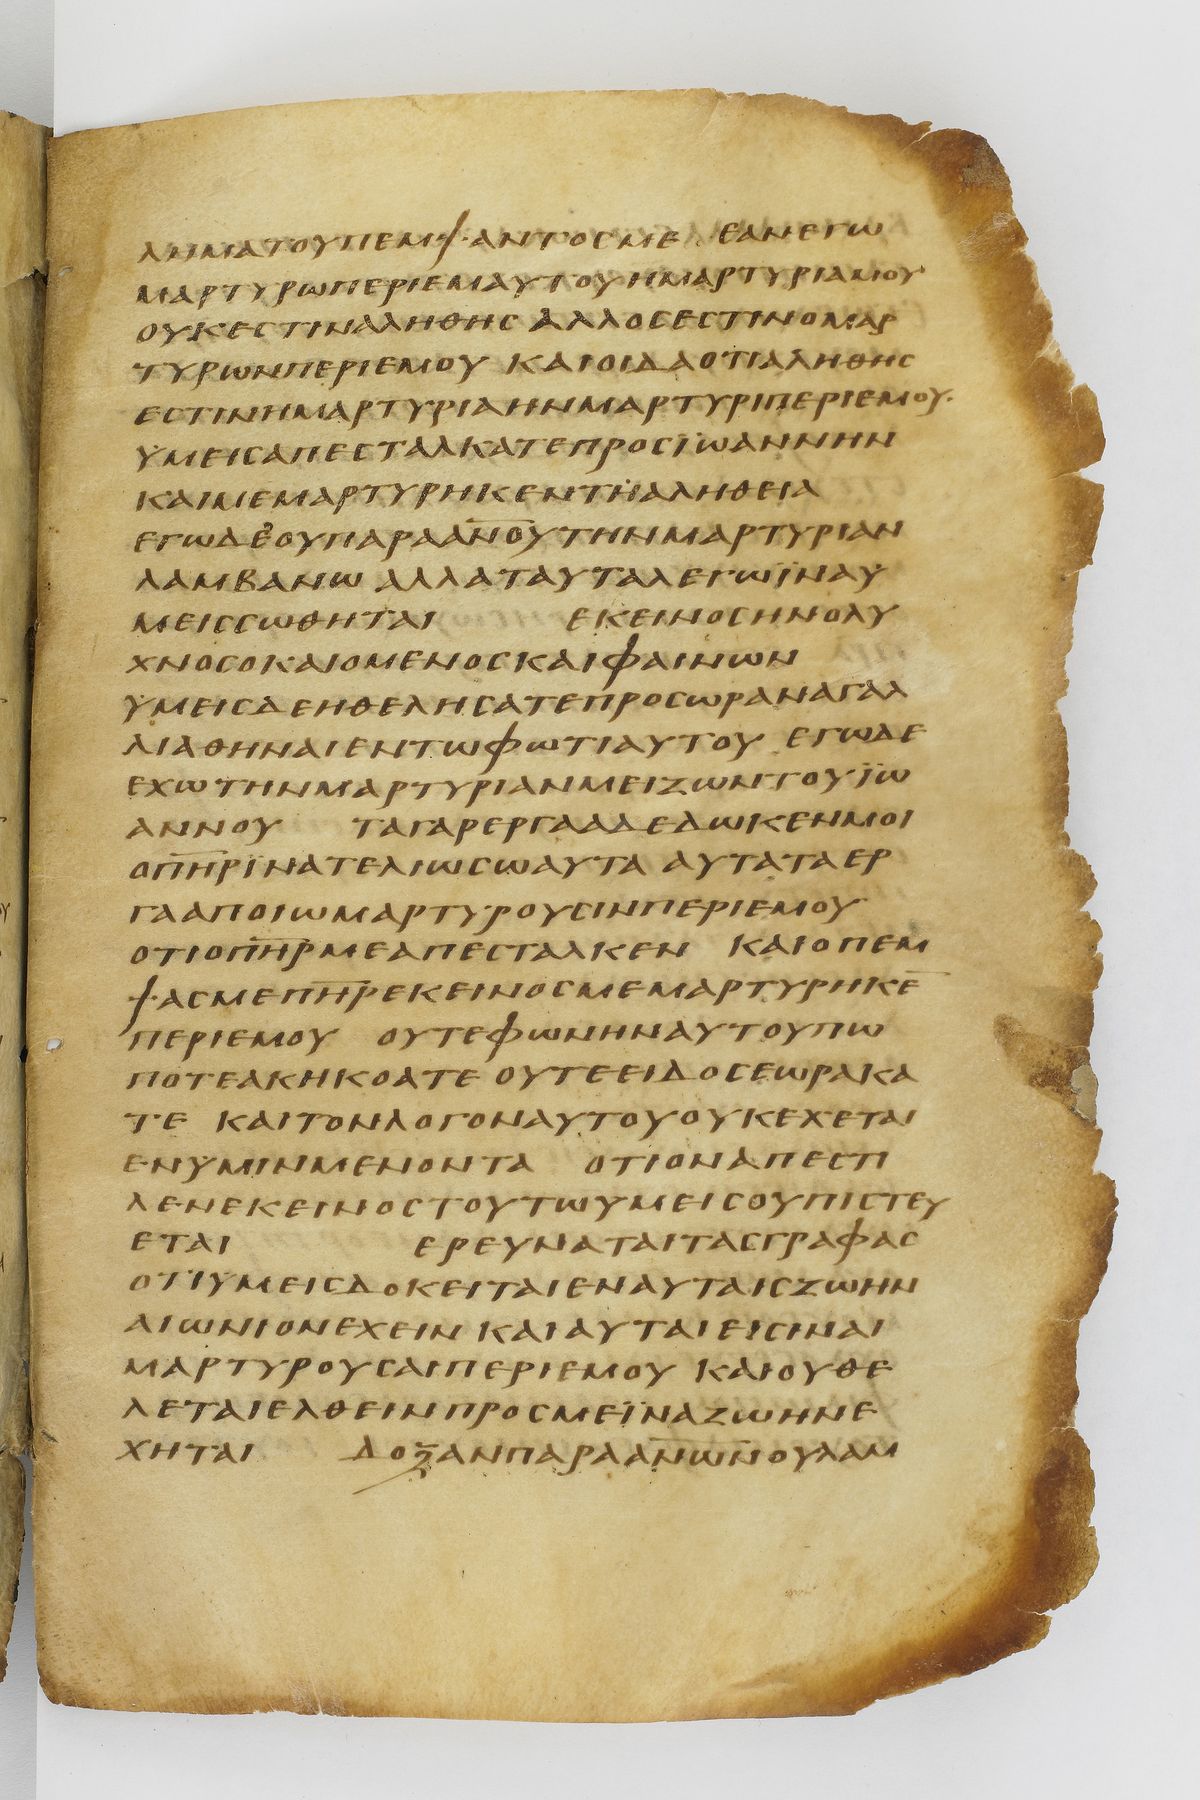 ΛΗΜΑΤΟΥΠΕΜΨΑΝΤΟΣΜΕ ΕΑΝΕΓΩ
ΜΑΡΤΥΡΩΠΕΡΙΕΜΑΥΤΟΥΗΜΑΡΤΥΡΙΑΜΟΥ
ΟΥΚΕΣΤΙΝΑΛΗΘΗΣ ΑΛΛΟΣΕΣΤΙΝΟΜΑΡ
ΤΥΡΩΝΠΕΡΙΕΜΟΥ ΚΑΙΟΙΔΑΟΤΙΑΛΗΘΗΣ
ΕΣΤΙΝΗΜΑΡΤΥΡΙΑΗΝΜΑΡΤΥΡΙΠΕΡΙΕΜΟΥ·
ΫΜΕΙΣΑΠΕΣΤΑΛΚΑΤΕΠΡΟΣΪΩΑΝΝΗΝ
ΚΑΙΜΕΜΑΡΤΥΡΗΚΕΝΤΗΑΛΗΘΕΙΑ
ΕΓΩΔΕΟΥΠΑΡΑΑ̅Ν̅Ο̅Υ̅ΤΗΝΜΑΡΤΥΡΙΑΝ
ΛΑΜΒΑΝΩ ΑΛΛΑΤΑΥΤΑΛΕΓΩΪΝΑΫ
ΜΕΙΣΣΩΘΗΤΑΙ ΕΚΕΙΝΟΣΗΝΟΛΥ
ΧΝΟΣΟΚΑΙΟΜΕΝΟΣΚΑΙΦΑΙΝΩΝ
ΫΜΕΙΣΔΕΗΘΕΛΗΣΑΤΕΠΡΟΣΩΡΑΝΑΓΑΛ
ΛΙΑΘΗΝΑΙΕΝΤΩΦΩΤΙΑΥΤΟΥ ΕΓΩΔΕ
ΕΧΩΤΗΝΜΑΡΤΥΡΙΑΝΜΕΙΖΩΝΤΟΥΪΩ
ΑΝΝΟΥ ΤΑΓΑΡΕΡΓΑΑΔΕΔΩΚΕΝΜΟΙ
ΟΠ̅Η̅Ρ̅ΪΝΑΤΕΛΙΩΣΩΑΥΤΑ ΑΥΤΑΤΑΕΡ
ΓΑΑΠΟΙΩΜΑΡΤΥΡΟΥΣΙΝΠΕΡΙΕΜΟΥ
ΟΤΙΟΠ̅Η̅Ρ̅ΜΕΑΠΕΣΤΑΛΚΕΝ ΚΑΙΟΠΕΜ
ΨΑΣΜΕΠ̅Η̅Ρ̅ΕΚΕΙΝΟΣΜΕΜΑΡΤΥΡΗΚΕ̅
ΠΕΡΙΕΜΟΥ ΟΥΤΕΦΩΝΗΝΑΥΤΟΥΠΩ
ΠΟΤΕΑΚΗΚΟΑΤΕ ΟΥΤΕΕΙΔΟΣΕΩΡΑΚΑ
ΤΕ ΚΑΙΤΟΝΛΟΓΟΝΑΥΤΟΥΟΥΚΕΧΕΤΑΙ
ΕΝΥΜΙΝΜΕΝΟΝΤΑ ΟΤΙΟΝΑΠΕΣΤΙ
ΛΕΝΕΚΕΙΝΟΣΤΟΥΤΩΥΜΕΙΣΟΥΠΙΣΤΕΥ
ΕΤΑΙ ΕΡΕΥΝΑΤΑΙΤΑΣΓΡΑΦΑΣ
ΟΤΙΫΜΕΙΣΔΟΚΕΙΤΑΙΕΝΑΥΤΑΙΣΖΩΗΝ
ΑΙΩΝΙΟΝΕΧΕΙΝ ΚΑΙΑΥΤΑΙΕΙΣΙΝΑΙ
ΜΑΡΤΥΡΟΥΣΑΙΠΕΡΙΕΜΟΥ ΚΑΙΟΥΘΕ
ΛΕΤΑΙΕΛΘΕΙΝΠΡΟΣΜΕΪΝΑΖΩΗΝΕ
ΧΗΤΑΙ ΔΟΞΑΝΠΑΡΑΑ̅Ν̅Ω̅Ν̅ΟΥΛΑΜ